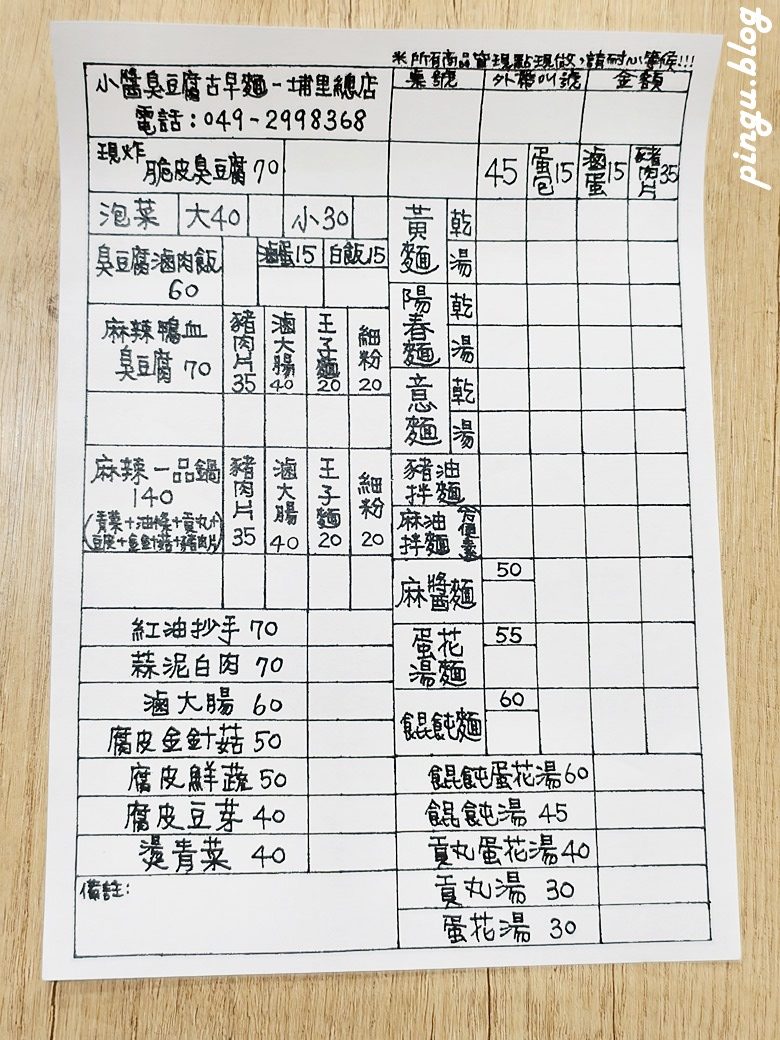 ※所有商品皆現點現做，請耐心等候!!!
pingu.blog
小醬臭豆腐古早麵-埔里總店
電話：049-2998368
桌號
外帶叫號
金額
現炸
脆皮臭豆腐 70
泡菜
大40
小30
臭豆腐滷肉飯
60
滷蛋15
白飯15
麻辣鴨血
臭豆腐 70
豬肉片 35
滷大腸 40
王子麵 20
細粉 20
麻辣一品鍋
140
(青菜+油條+貢丸+
豆皮+金針菇+豬肉片)
豬肉片 35
滷大腸 40
王子麵 20
細粉 20
紅油抄手 70
蒜泥白肉 70
滷大腸 60
腐皮金針菇 50
腐皮鮮蔬 50
腐皮豆芽 40
燙青菜 40
備註：
45
蛋包15
滷蛋15
豬肉片35
黃麵
乾
湯
陽春麵
乾
湯
意麵
乾
湯
豬油
拌麵
麻油
拌麵
麻醬麵
50
蛋花
湯麵
55
餛飩麵
60
餛飩蛋花湯60
餛飩湯 45
貢丸蛋花湯40
貢丸湯 30
蛋花湯 30